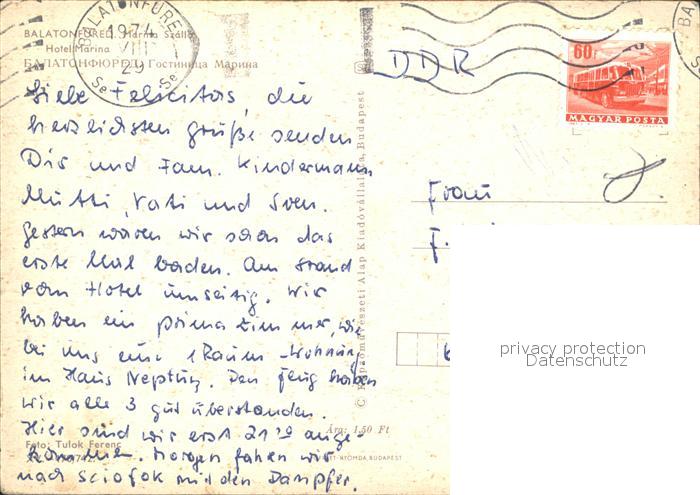 BALATONFÜRED. Marina Szálló
Hotel Marina
БАЛАТОНФЮРЕД. Гостиница Марина
BALATONFÜRED
1974
VIII
29
Se Se
DDR
60f
MAGYAR POSTA
BA
Liebe Felicitas, die
herzlichsten Grüße senden
Dir und Fam. Kindermann
Mutti, Vati und Sven.
Gestern waren wir schon das
erste Mal baden. Am Strand
vom Hotel umseitig. Wir
haben ein prima Zimmer, wie
bei uns eine 1 Raum-Wohnung
im Haus Neptun. Den Flug haben
wir alle 3 gut überstanden.
Hier sind wir erst 21 30 ange-
kommen. Morgen fahren wir
nach Sciofok mit den Dampfer.
Foto: Tulok Ferenc
© Képzőművészeti Alap Kiadóvállalata, Budapest
Ára: 1,50 Ft
NYOMDA, BUDAPEST
Frau
F.
privacy protection
Datenschutz